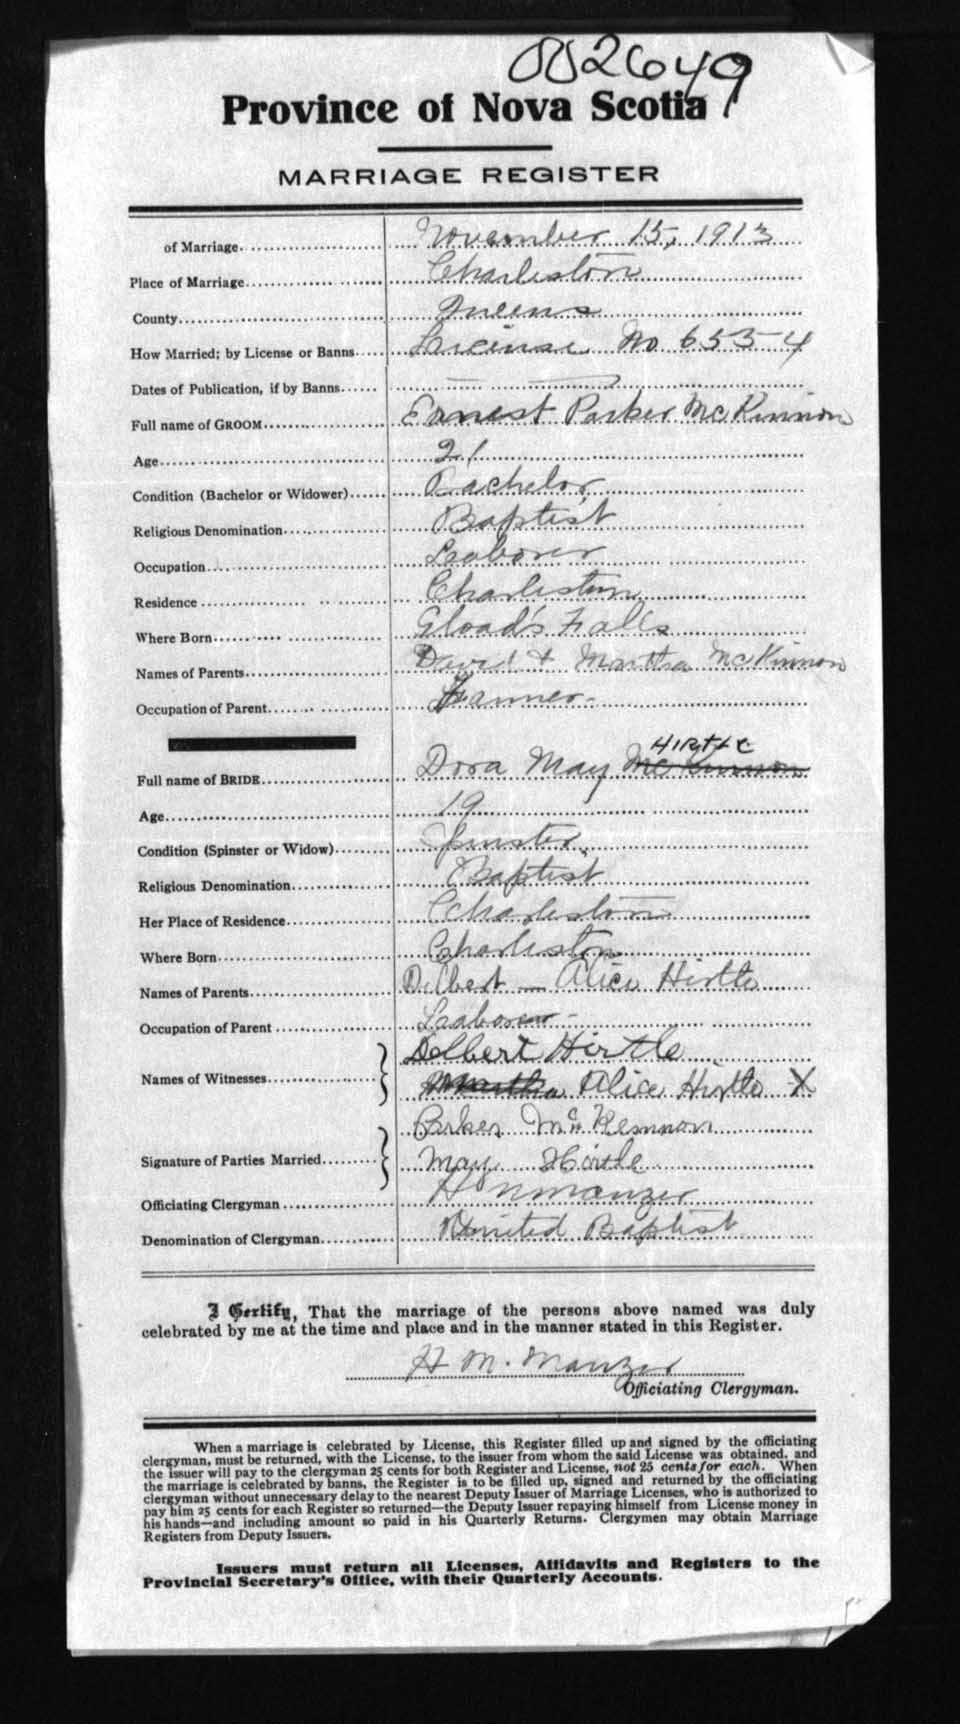 002649
Province of Nova Scotia
MARRIAGE REGISTER
of Marriage November 15, 1913
Place of Marriage Charleston
County Queens
How Married; by License or Banns License No 6554
Dates of Publication, if by Banns
Full name of GROOM Ernest Parker McKinnon
Age 21
Condition (Bachelor or Widower) Bachelor
Religious Denomination Baptist
Occupation Laborer
Residence Charleston
Where Born Gload's Falls
Names of Parents David & Martha McKinnon
Occupation of Parent Farmer
HIRTLE
Full name of BRIDE Dora May McKinnon
Age 19
Condition (Spinster or Widow) Spinster
Religious Denomination Baptist
Her Place of Residence Charleston
Where Born Charleston
Names of Parents Delbert — Alice Hirtle
Occupation of Parent Laborer
Delbert Hirtle
Names of Witnesses Martha Alice Hirtle X
Parker McKennon
Signature of Parties Married May Hirtle
Officiating Clergyman H M Manzer
Denomination of Clergyman United Baptist
I Certify, That the marriage of the persons above named was duly
celebrated by me at the time and place and in the manner stated in this Register.
H M. Manzer
Officiating Clergyman.
When a marriage is celebrated by License, this Register filled up and signed by the officiating
clergyman, must be returned, with the License, to the issuer from whom the said License was obtained, and
the issuer will pay to the clergyman 25 cents for both Register and License, not 25 cents for each. When
the marriage is celebrated by banns, the Register is to be filled up, signed and returned by the officiating
clergyman without unnecessary delay to the nearest Deputy Issuer of Marriage Licenses, who is authorized to
pay him 25 cents for each Register so returned—the Deputy Issuer repaying himself from License money in
his hands—and including amount so paid in his Quarterly Returns. Clergymen may obtain Marriage
Registers from Deputy Issuers.
Issuers must return all Licenses, Affidavits and Registers to the
Provincial Secretary's Office, with their Quarterly Accounts.